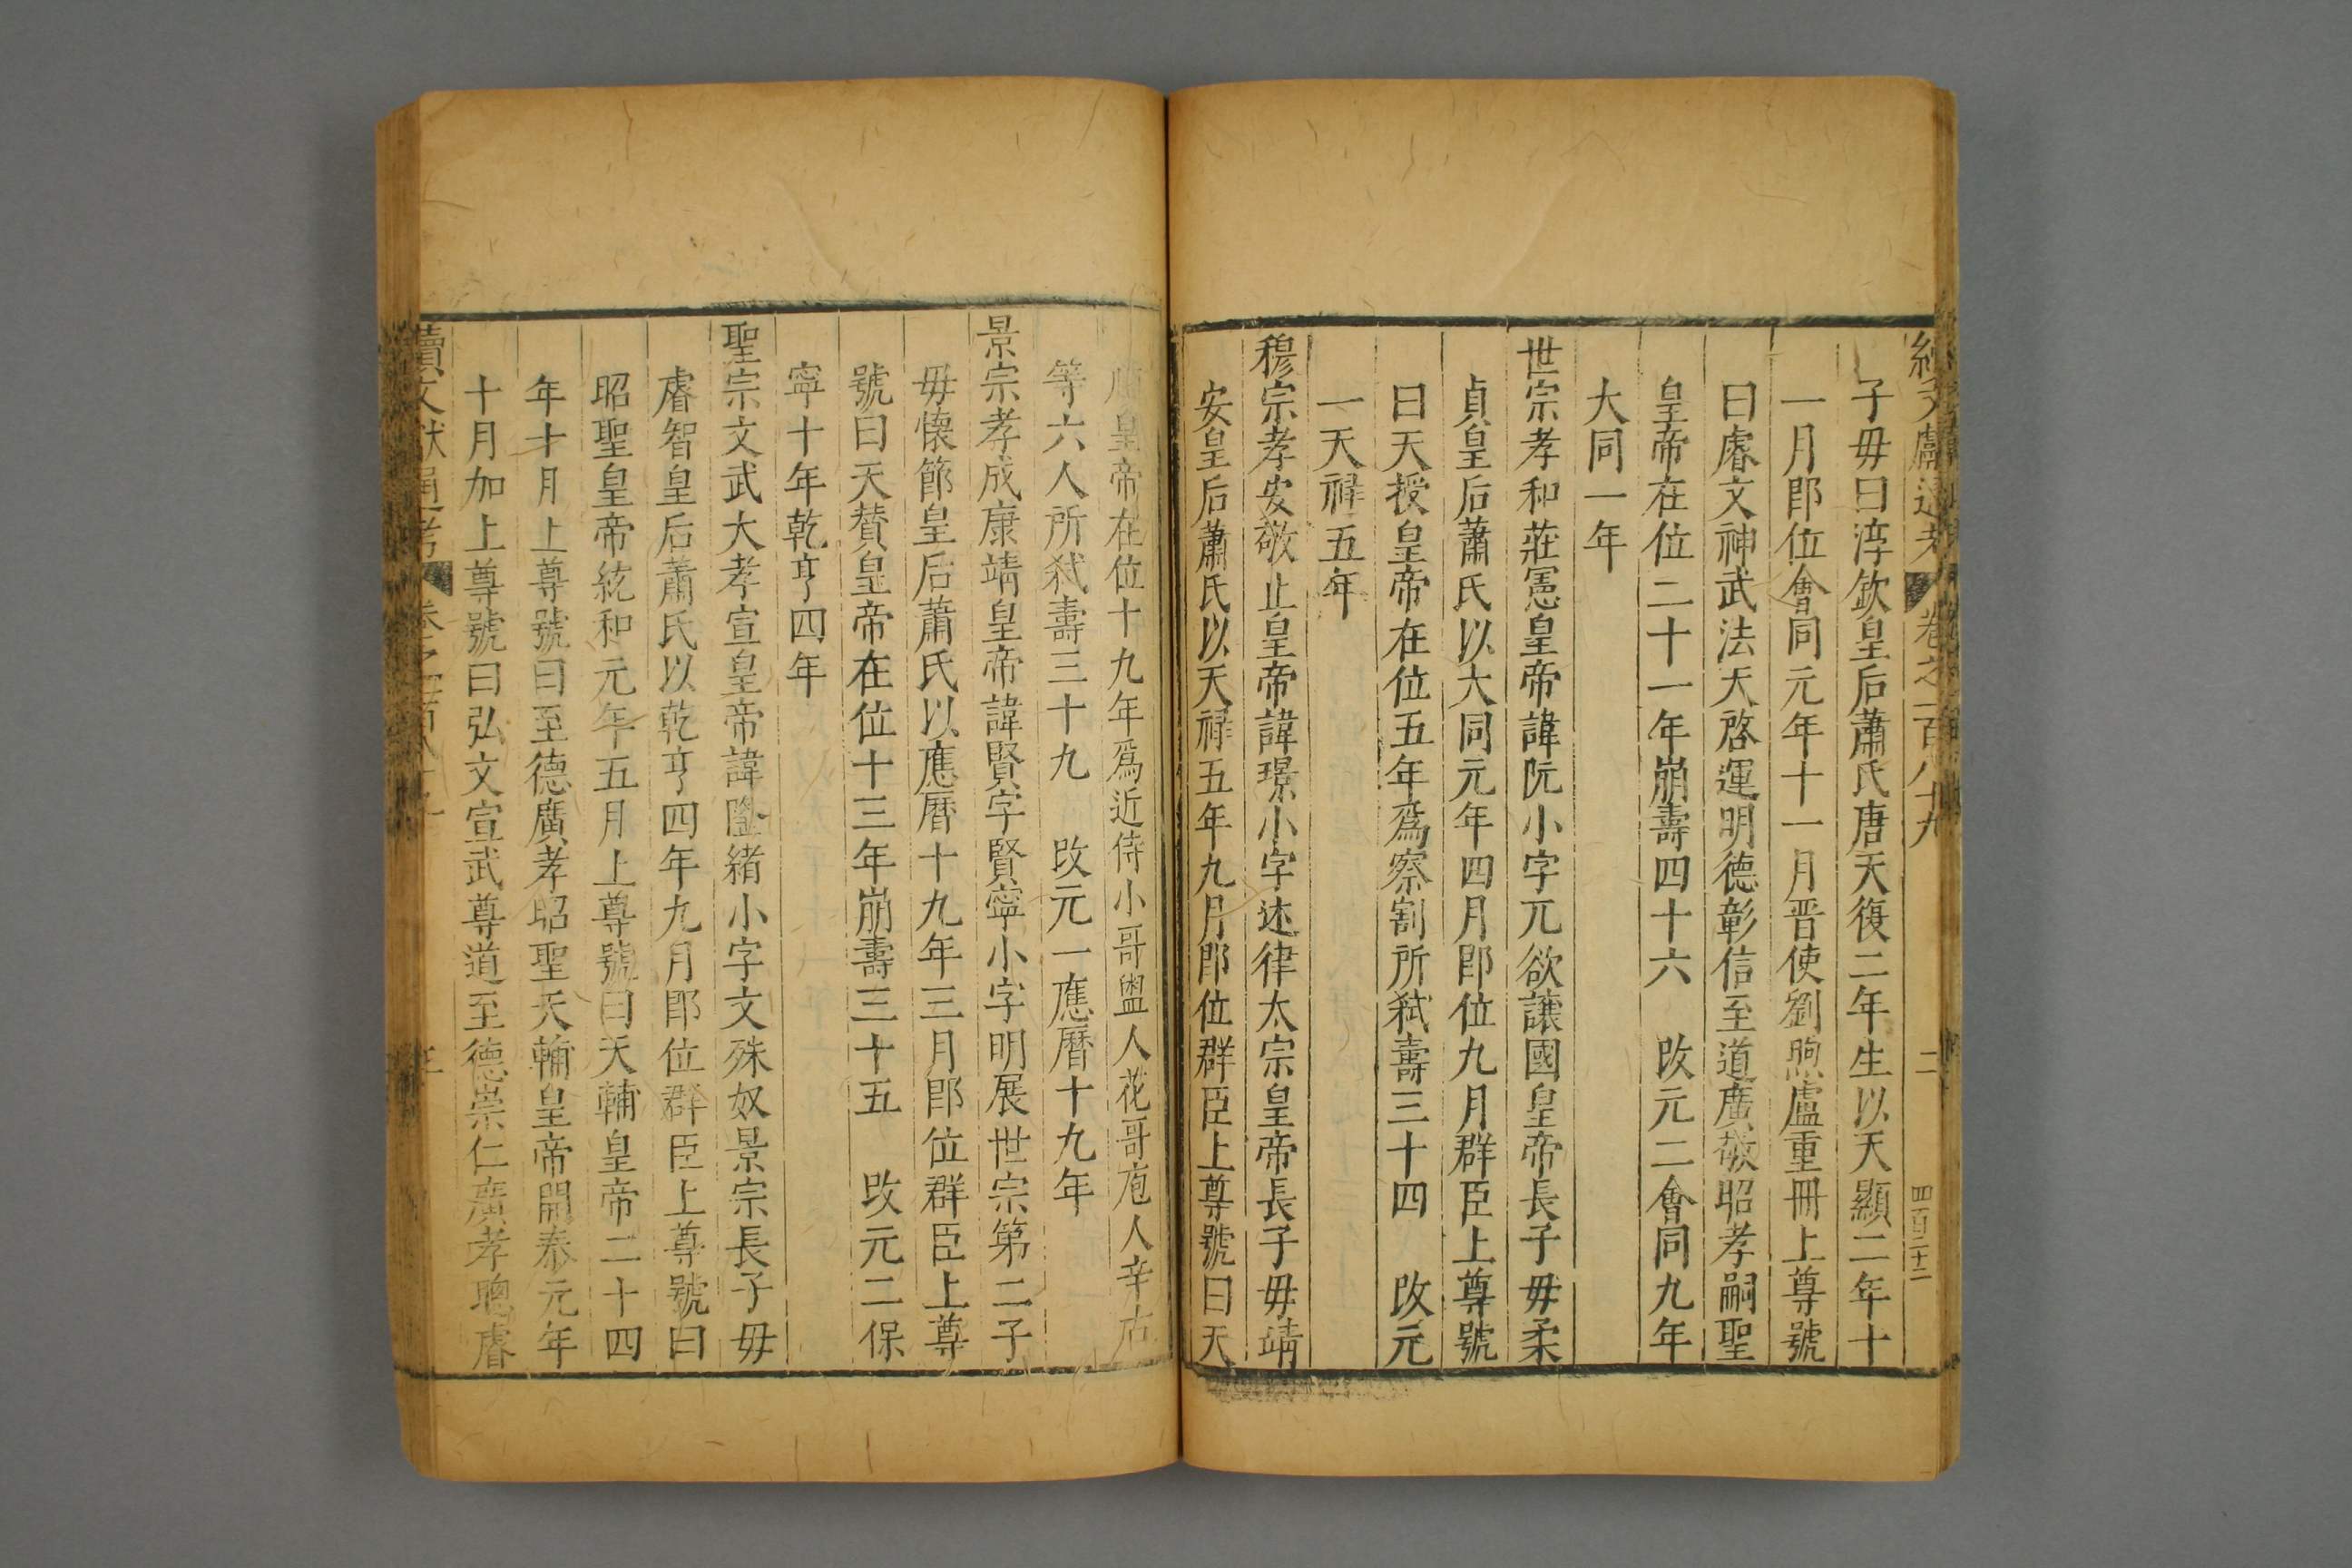 續文獻通考 卷之一百八十九 二 四百二十二
子毋曰淳欽皇后蕭氏唐天復二年生以天顯二年十
一月即位會同元年十一月晋使劉煦盧重冊上尊號
曰睿文神武法天啓運明德彰信至道廣敬昭孝嗣聖
皇帝在位二十一年崩壽四十六 改元二會同九年
大同一年
世宗孝和莊憲皇帝諱阮小字兀欲讓國皇帝長子毋柔
貞皇后蕭氏以大同元年四月即位九月群臣上尊號
曰天授皇帝在位五年爲察割所弑壽三十四 改元
一天祿五年
穆宗孝安敬止皇帝諱璟小字述律太宗皇帝長子毋靖
安皇后蕭氏以天祿五年九月即位群臣上尊號曰天
順皇帝在位十九年爲近侍小哥盥人花哥庖人辛古
等六人所弑壽三十九 改元一應曆十九年
景宗孝成康靖皇帝諱賢字賢寧小字明扆世宗第二子
毋懐節皇后蕭氏以應曆十九年三月即位群臣上尊
號曰天賛皇帝在位十三年崩壽三十五 改元二保
寧十年乾亨四年
聖宗文武大孝宣皇帝諱隆緒小字文殊奴景宗長子毋
睿智皇后蕭氏以乾亨四年九月即位群臣上尊號曰
昭聖皇帝統和元年五月上尊號曰天輔皇帝二十四
年十月上尊號曰至德廣孝昭聖天輔皇帝開泰元年
十月加上尊號曰弘文宣武尊道至德崇仁廣孝聰睿
續文獻通考